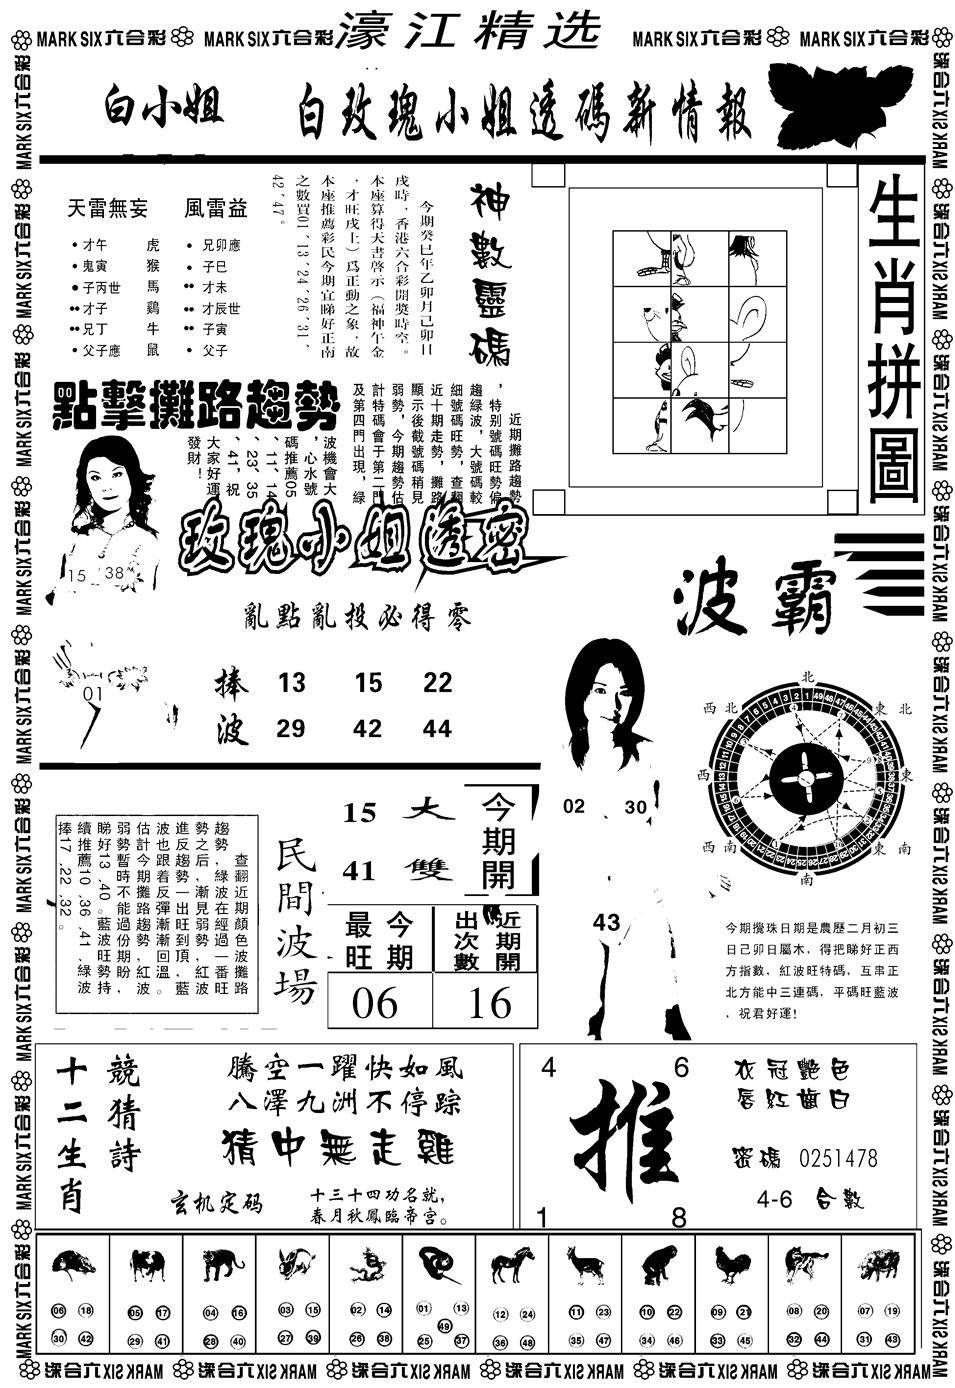 MARK SIX六合彩 MARK SIX六合彩 濠江精选 MARK SIX六合彩 MARK SIX六合彩
白小姐 白玫瑰小姐透碼新情報
天雷無妄 風雷益
• 才午 虎 • 兄卯應
• 鬼寅 猴 • 子巳
• 子丙世 馬 •• 才未
•• 才子 鷄 •• 才辰世
•• 兄丁 牛 •• 子寅
• 父子應 鼠 • 父子
神數靈碼
今期癸巳年乙卯月己卯日
戌時，香港六合彩開獎時空。
本座算得天書啓示（福神午金
，才旺戌土）爲正動之象，故
本座推薦彩民今期宜睇好正南
之數買01、13、24、26、31、
42、47。
生肖拼圖
點擊攤路趨勢
近期攤路趨勢
，特别號碼旺勢偏
趨綠波，大號碼較
細號碼旺勢，查翻
近十期走勢，攤路
顯示後截號碼稍見
弱勢，今期趨勢估
計特碼會于第二門
及第四門出現，綠
波機會大
，心水號
碼推薦05
、11、14
、23、35
、41，祝
大家好運
發財！
15 38
01
玫瑰小姐透密
亂點亂投必得零
捧 13 15 22
波 29 42 44
波霸
02 30
43
北
西北 東北
西 東
西南 東南
南
今期攪珠日期是農歷二月初三
日己卯日屬木，得把睇好正西
方指數，紅波旺特碼，互串正
北方能中三連碼，平碼旺藍波
，祝君好運！
查翻近期顔色波攤路
趨勢，綠波在經過一番旺
勢之后，漸見弱勢，紅波
進反跟趨勢一出旺到頂，藍
波也期着反彈漸漸回溫。
估計今攤路趨勢紅波
弱勢暫時不能過份盼，
睇好13、40。藍波旺期勢持
續推薦10、36、41、綠波
捧17、22、32。
民間波場
15 大
41 雙
今期開
今期最旺 近期開出次數
06 16
十二生肖
競猜詩
騰空一躍快如風
八澤九洲不停踪
猜中無走雞
玄机定码
十三十四功名就，
春月秋鳳臨帝宫。
4 6
推
1 8
衣冠艷色
唇紅齒白
密碼 0251478
4-6 合數
06 18 05 17 04 16 03 15 02 14 01 13 12 24 11 23 10 22 09 21 08 20 07 19
49
30 42 29 41 28 40 27 39 26 38 25 37 36 48 35 47 34 46 33 45 32 44 31 43
MARK SIX六合彩 MARK SIX六合彩 MARK SIX六合彩 MARK SIX六合彩 MARK SIX六合彩 MARK SIX六合彩